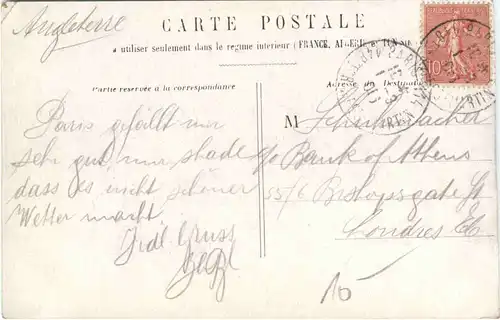 Angleterre
CARTE POSTALE
a utiliser seulement dans le régime intérieur (FRANCE, ALGERIE et TUNISIE)
Partie réservée à la correspondance
Adresse du Destinataire
Paris gefällt mir
sehr gut, nur shade
dass es nicht schöner
Wetter macht.
Frdl. Gruss
M Schumacher
c/o Bank of Athens
55/6 Bishopsgate St
Londres EC
10
10